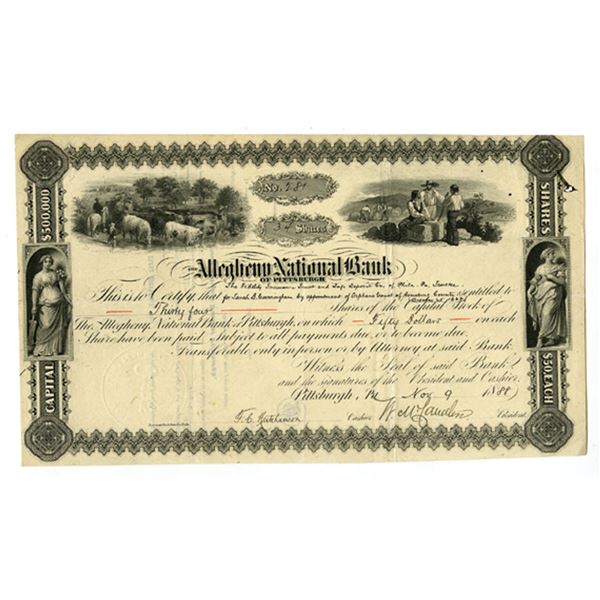 No. 284
34 Shares
THE Allegheny National Bank
OF PITTSBURGH
The Fidelity Insurance Trust and Safe Deposit Co. of Phila. Pa. Trustee
This is to Certify, that for Sarah D. Cunningham by appointment of Orphans Court of County is entitled to
Thirty four Shares of the Capital Stock of
The Allegheny National Bank of Pittsburgh, on which Fifty Dollars on each
Share have been paid. Subject to all payments due, or to become due.
Transferable only in person or by Attorney at said Bank.
Witness the Seal of said Bank
and the signatures of the President and Cashier.
Pittsburgh, Pa Nov 9 1888
F. C. Hutchinson Cashier. President.
CAPITAL $500,000
SHARES $50, EACH